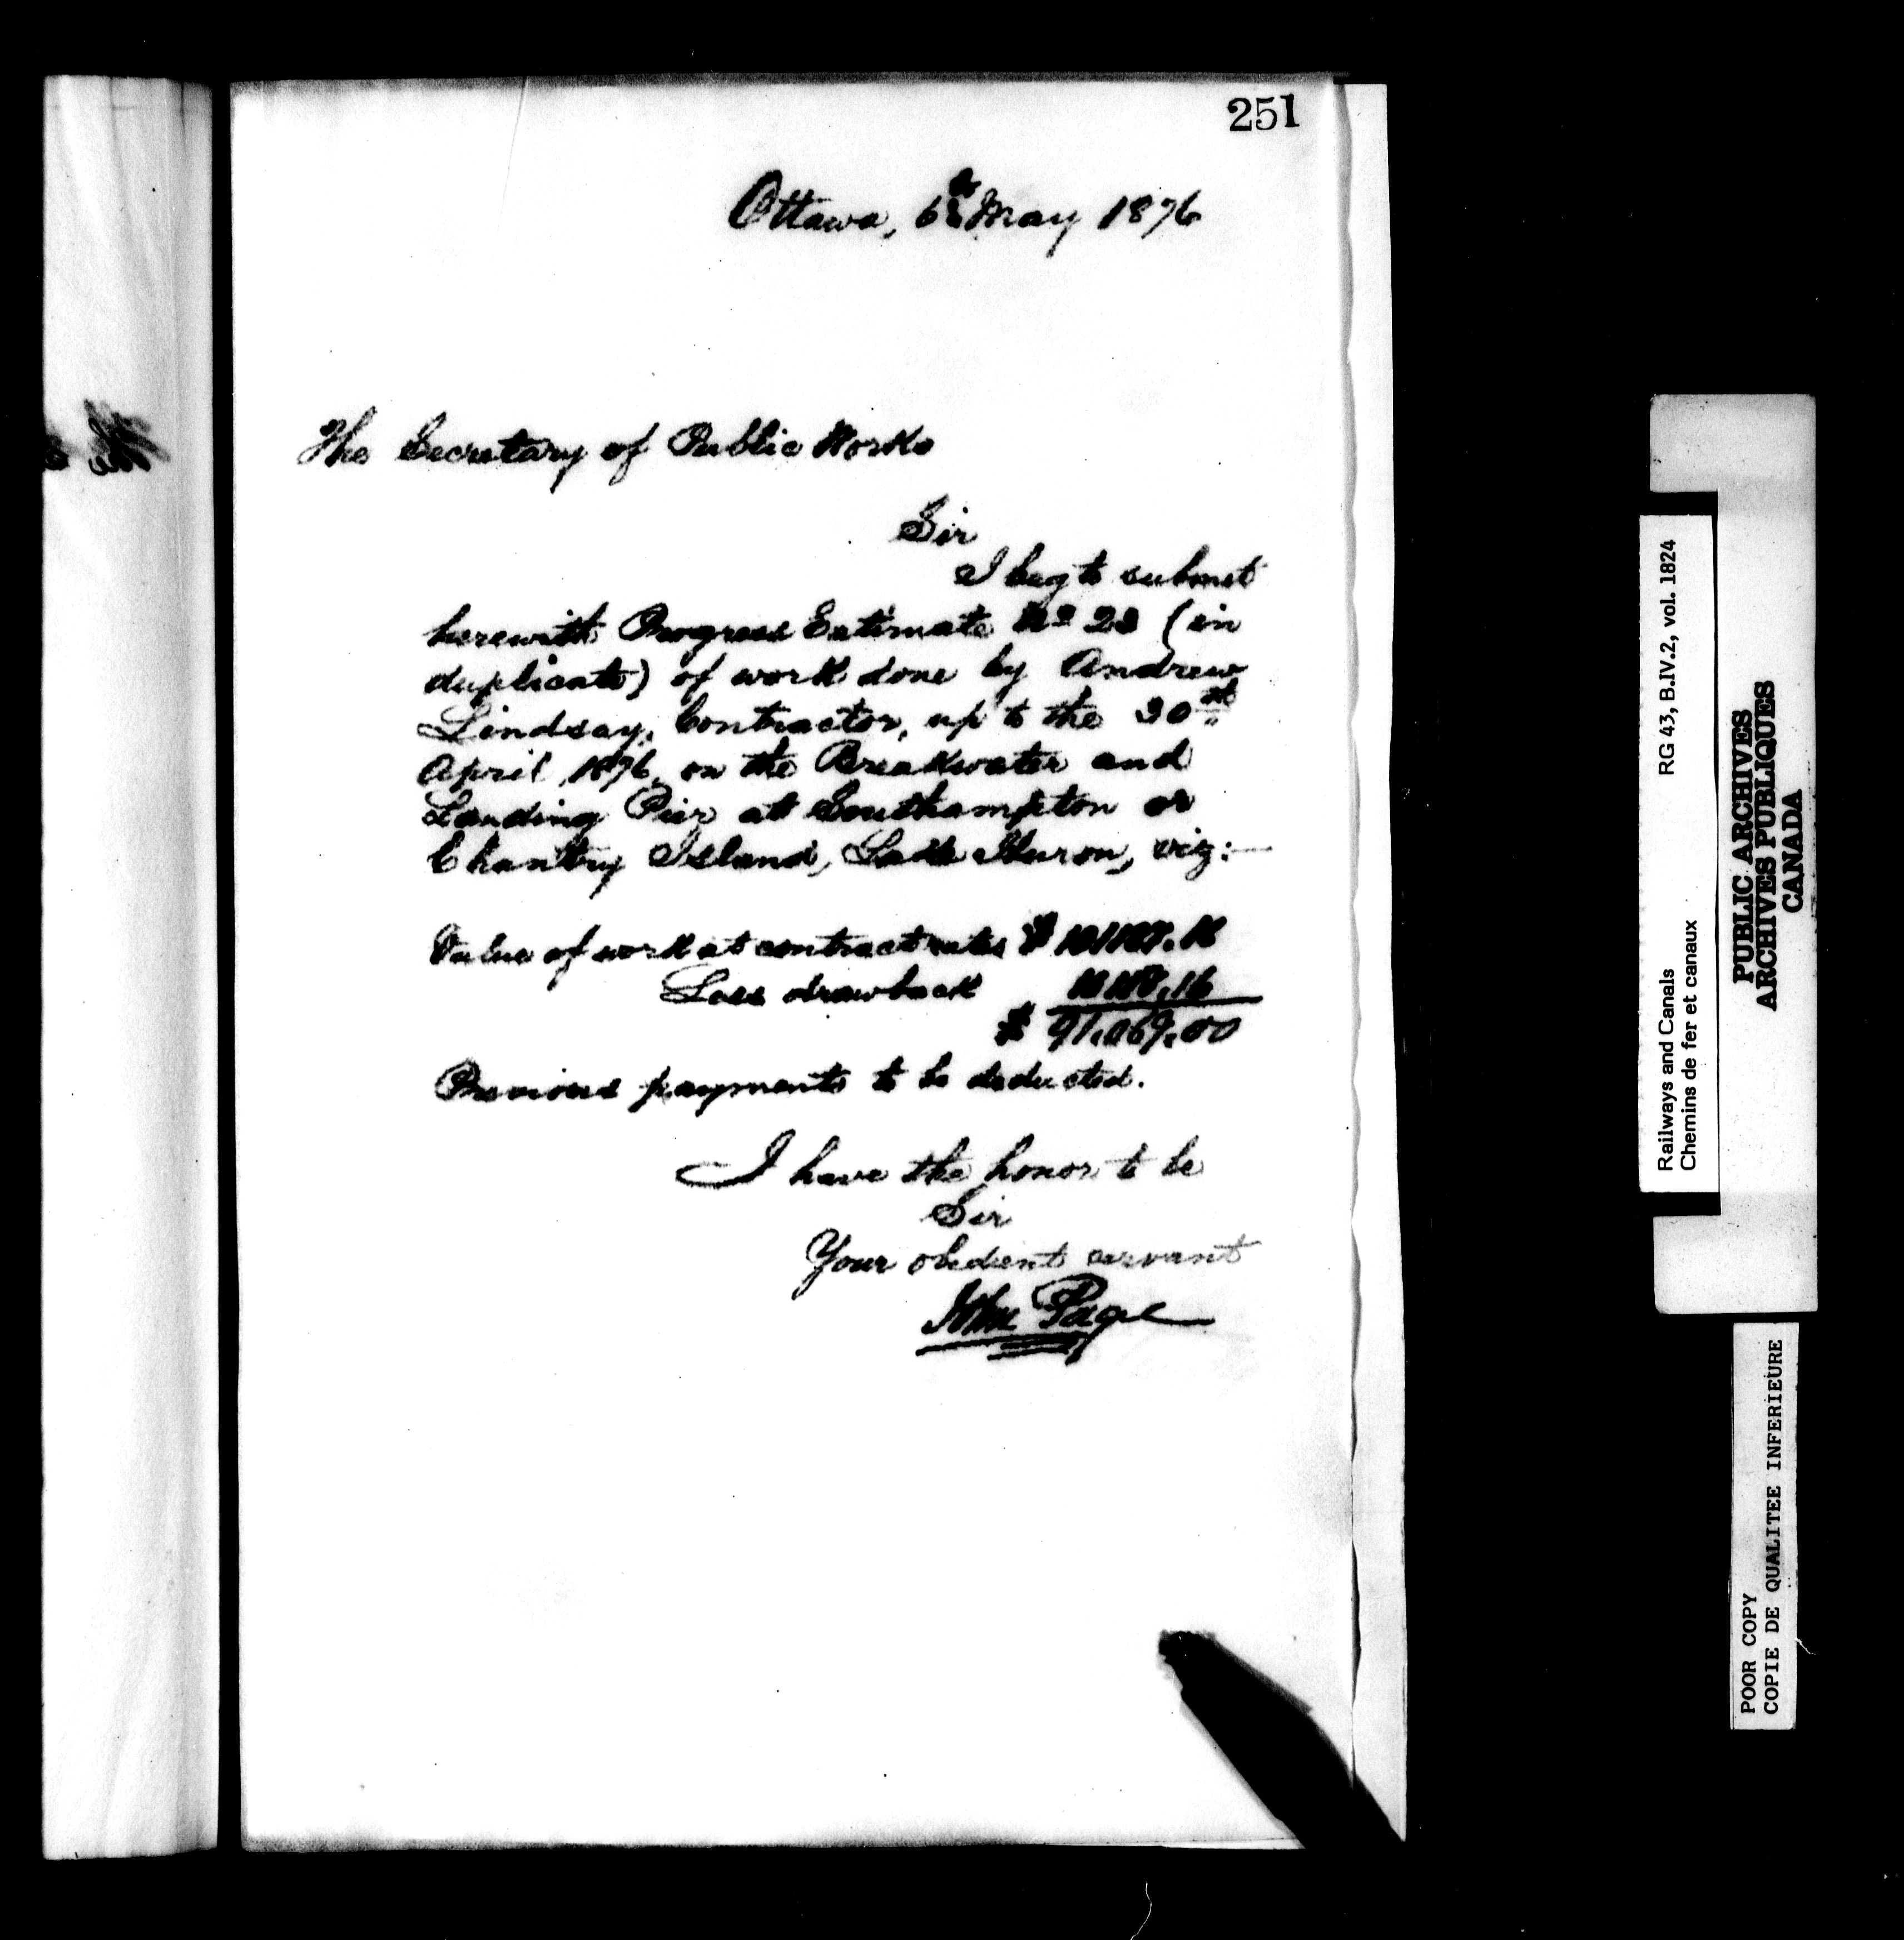 251
Ottawa, 6th May 1876
The Secretary of Public Works
Sir
I beg to submit
herewith Progress Estimate No 23 (in
duplicate) of work done by Andrew
Lindsay, Contractor, up to the 30th
April, 1876, on the Breakwater and
Landing Pier at Southampton or
Chantry Island, Lake Huron, viz:—
Value of work at contract rates $ 101187.16
Less drawback 10118.16
$ 91,069.00
Previous payments to be deducted.
I have the honor to be
Sir
Your obedient servant
John Page
RG 43, B.IV.2, vol. 1824
Railways and Canals
Chemins de fer et canaux
PUBLIC ARCHIVES
ARCHIVES PUBLIQUES
CANADA
POOR COPY
COPIE DE QUALITEE INFERIEURE